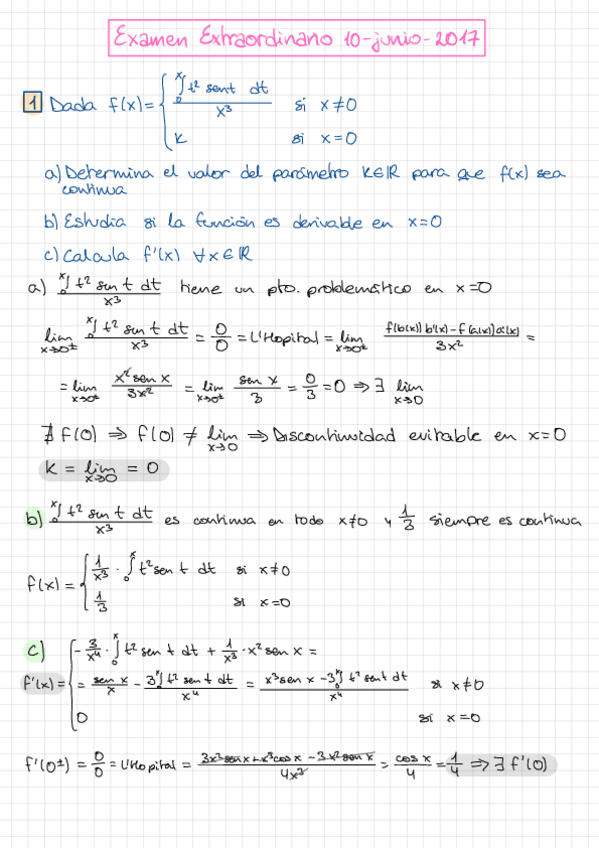 Examen Extraordinario 10-junio-2017
1 Dada f(x) = { ∫₀ˣ t² sent dt / x³ si x≠0
k si x=0
a) Determina el valor del parámetro K∈ℝ para que f(x) sea
continua
b) Estudia si la función es derivable en x=0
c) Calcula f'(x) ∀x∈ℝ
a) ∫₀ˣ t² sen t dt / x³ tiene un pto. problemático en x=0
lim x→0± ∫₀ˣ t² sen t dt / x³ = 0/0 = L'Hopital = lim x→0± f(b(x)) b'(x) - f(a(x)) a'(x) / 3x² =
= lim x→0± x² sen x / 3x² = lim x→0± sen x / 3 = 0/3 = 0 ⇒ ∃ lim x→0
∄ f(0) ⇒ f(0) ≠ lim x→0 ⇒ Discontinuidad evitable en x=0
K = lim x→0 = 0
b) ∫₀ˣ t² sen t dt / x³ es continua en todo x≠0 y 1/3 siempre es continua
f(x) = { 1/x³ · ∫₀ˣ t² sen t dt si x≠0
1/3 si x=0
c) { -3/x⁴ · ∫₀ˣ t² sen t dt + 1/x³ · x² sen x =
f'(x) = { = sen x / x - 3∫₀ˣ t² sen t dt / x⁴ = x³ sen x - 3∫₀ˣ t² sent dt / x⁴ si x≠0
0 si x=0
f'(0±) = 0/0 = L'Hopital = 3x² sen x + x³ cos x - 3x² sen x / 4x³ = cos x / 4 = 1/4 ⇒ ∃ f'(0)